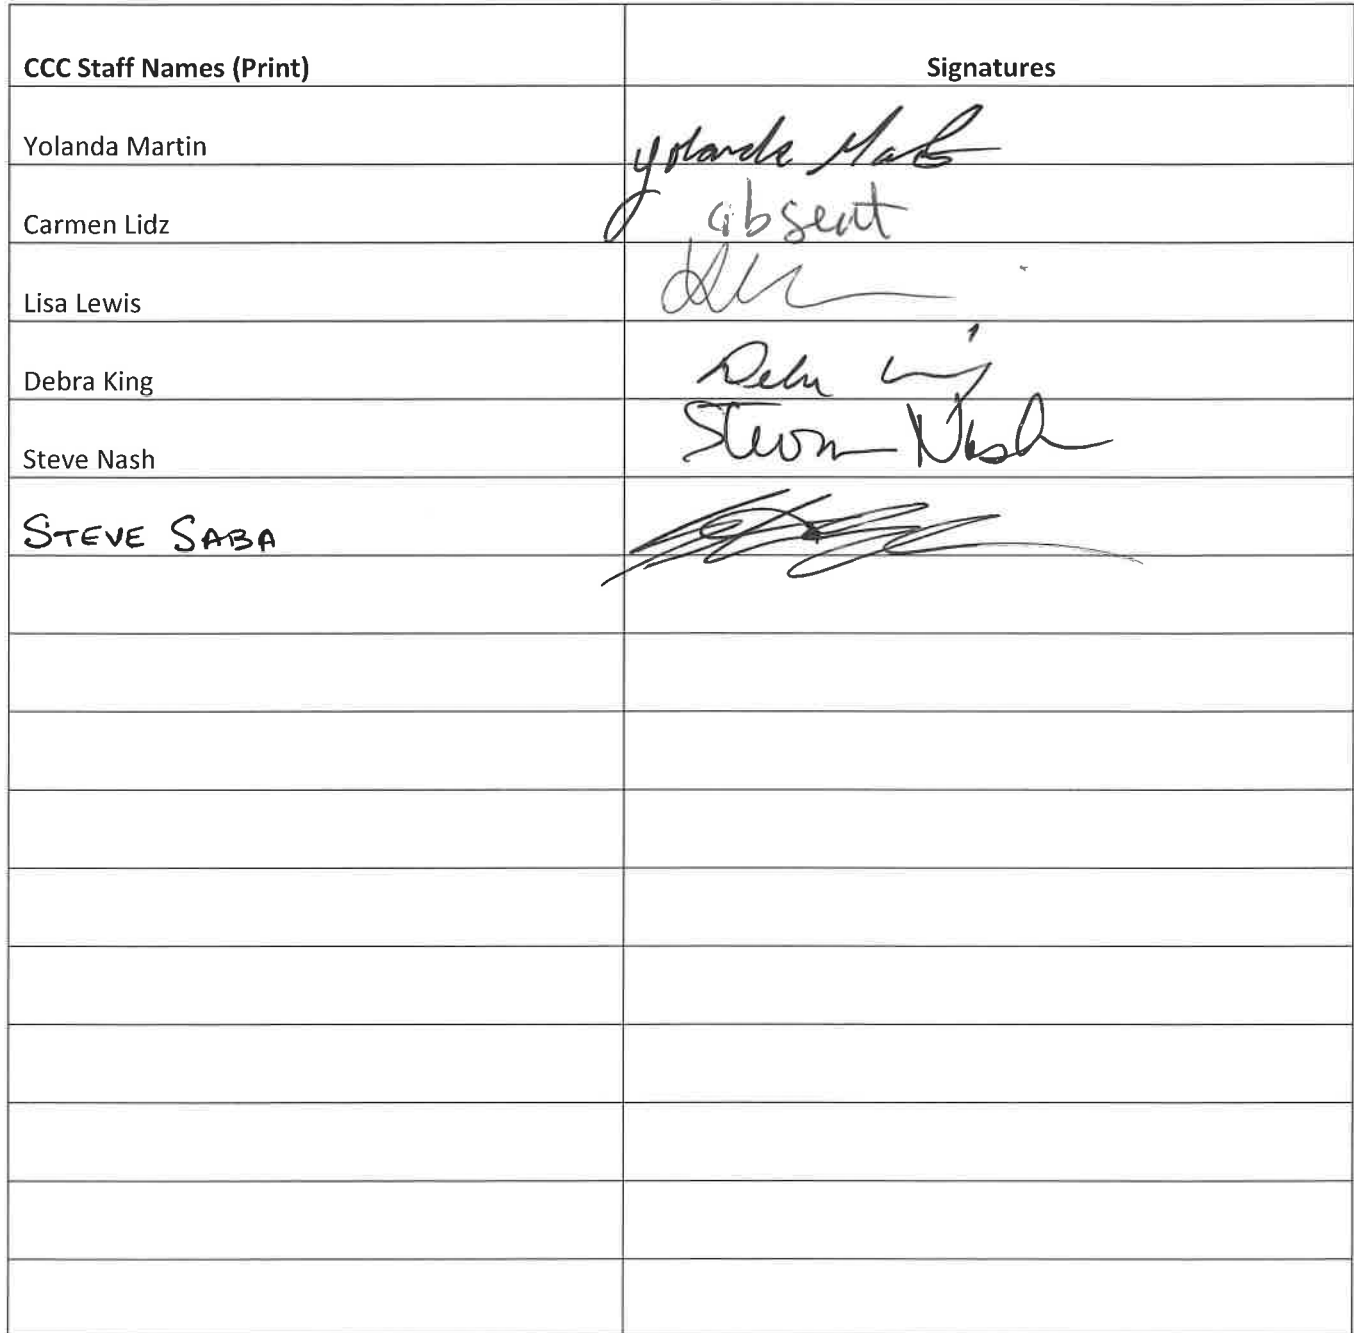 CCC Staff Names (Print) Signatures
Yolanda Martin Yolanda
Carmen Lidz absent
Lisa Lewis
Debra King
Steve Nash Steven Nash
STEVE SABA